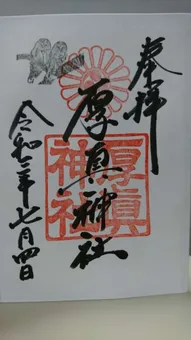 奉拝
厚真神社
厚真神社
令和二年七月四日